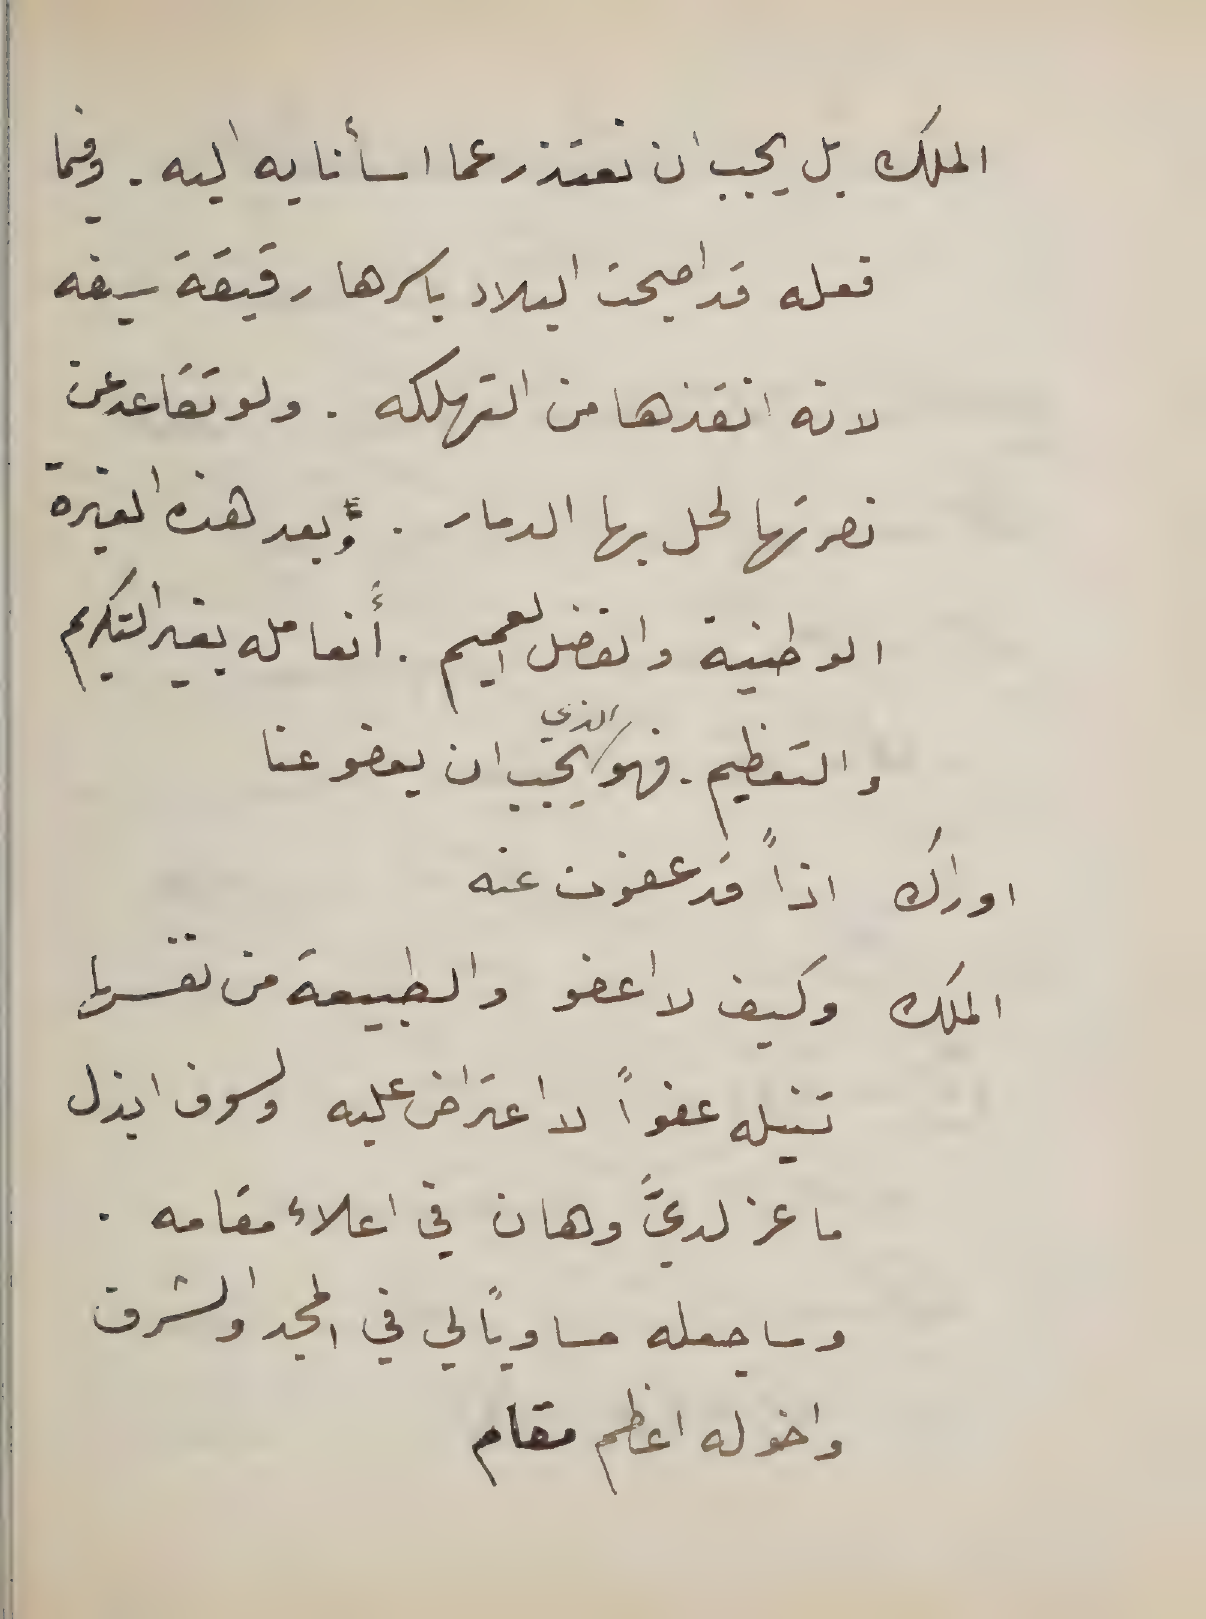 الملك بل يجب ان نعتذر عما اسأنا به اليه . وفيما
فعله قد اصبحت البلاد باسرها رقيقة سيفه
لانه انقذها من التهلكه . ولو تقاعد عن
نصرتها لحل بها الدمار . وبعد هذه الغيرة
الوطنية والفضل العميم . أنعامله بغير التكريم
والتعظيم . فهو الذي يجب ان يعفو عنا
اوراك اذاً قد عفوت عنه
الملك وكيف لا اعفو والطبيعة من نفسها
تنيله عفواً لا اعتراض عليه ولسوف ابذل
ما عز لديَّ وهان في اعلاء مقامه .
وساجعله مساوياً لي في المجد والشرف
واخوله اعظم مقام